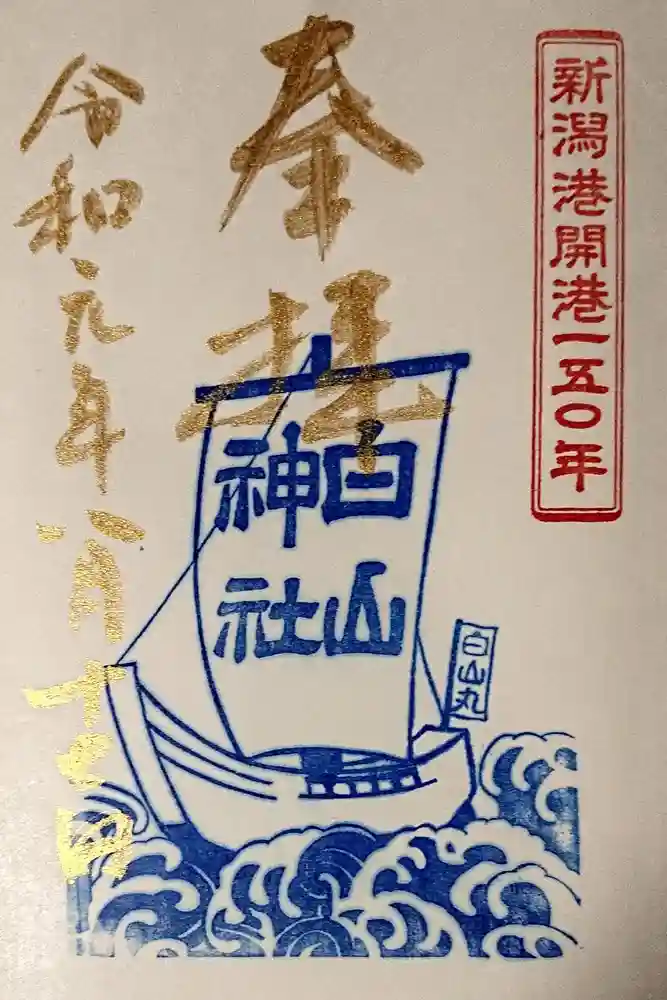 新潟港開港一五〇年
奉拝
白山
神社
白山丸
令和元年八月十七日